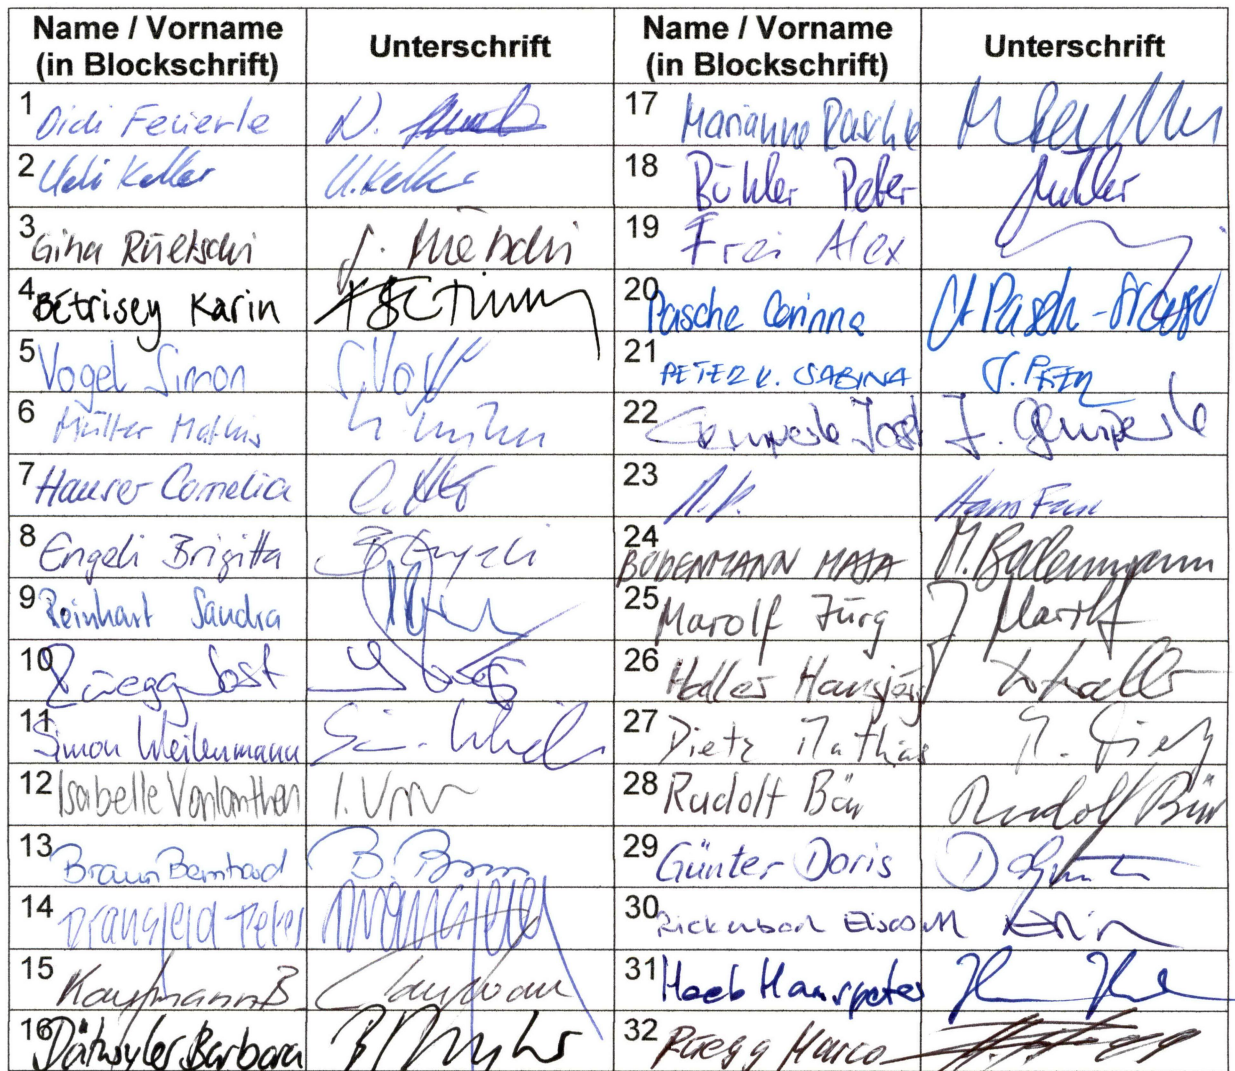 Name / Vorname (in Blockschrift) Unterschrift Name / Vorname (in Blockschrift) Unterschrift
1 Didi Feuerle D. 17 Marianne Raschle M
2 Ueli Keller U. Keller 18 Bühler Peter Bühler
3 Gina Rüetschi 19 Frei Alex
4 Bétrisey Karin 20 Pasche Corinna
5 Vogel Simon S. Vogel 21 PETER K. SABINA S. PETER
6 Müller Mathis 22 Gemperle Josef J. Gemperle
7 Hauser Cornelia C. 23 Hans Feuz
8 Engeli Brigitta B Engeli 24 BODENMANN MAJA M. Bodenmann
9 Reinhart Sandra 25 Marolf Jürg J Marolf
10 Rüegg Jost 26 Haller Hansjörg Haller
11 Simon Weilenmann 27 Dietz Mathias M. Dietz
12 Isabelle Vonlanthen I. 28 Rudolf Bär Rudolf Bär
13 Braun Bernhard B. Braun 29 Günter Doris D Günter
14 Dransfeld Peter Dransfeld 30 Rickenbach Elisabeth
15 Kaufmann B Kaufmann 31 Heeb Hanspeter
16 Dätwyler Barbara 32 Rüegg Marco